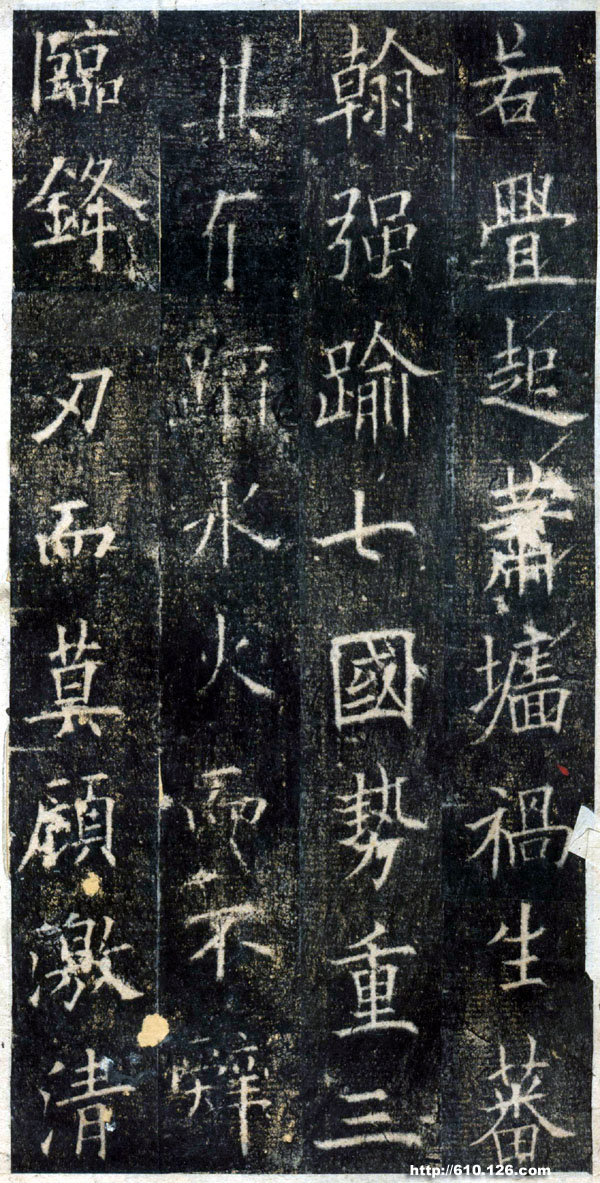 若疊起蕭墻禍生蕃
翰强踰七國勢重三
水火而不辤
臨鋒刃而莫顧激清
http://610.126.com